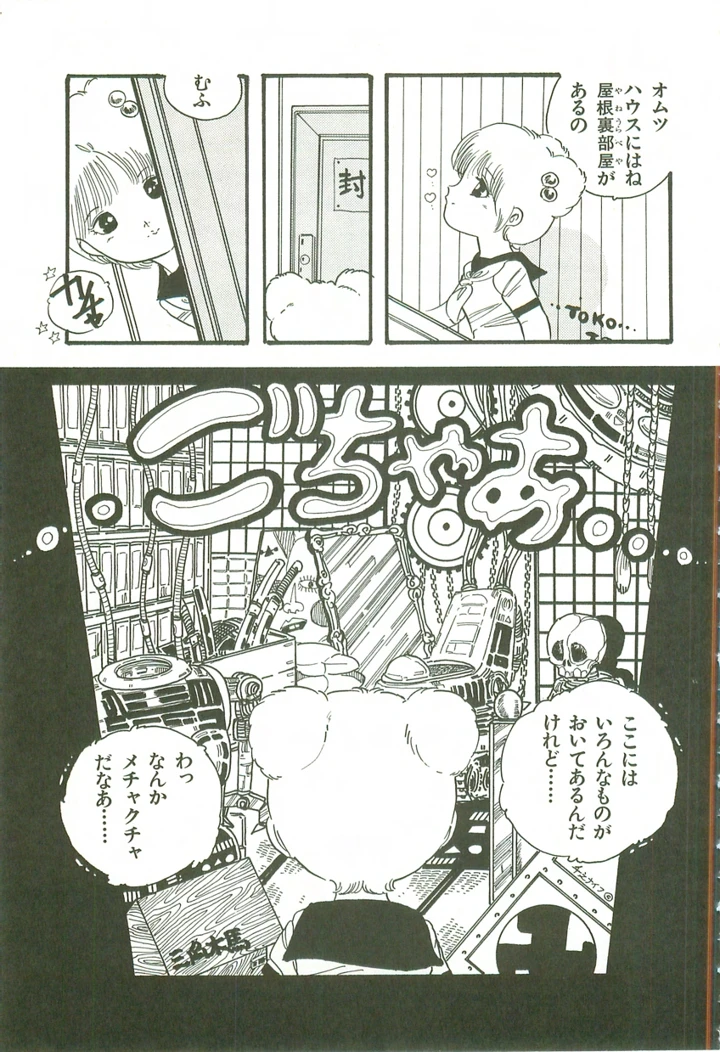 オムツ
ハウスにはね
屋根裏部屋が
あるの
やねうらべや
..TOKO...
封
むふ
ごちゃあ
ここには
いろんなものが
おいてあるんだ
けれど……
わっ
なんか
メチャクチャ
だなあ……
三角木馬